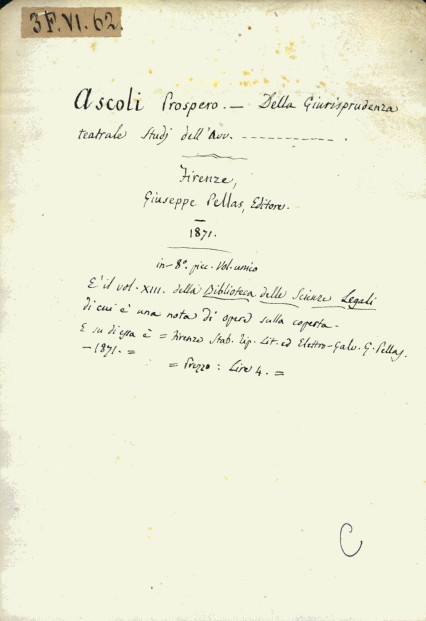 3 F. VI. 62.
Ascoli Prospero. — Della Giurisprudenza
teatrale Studj dell'Avv. ------------ .
Firenze,
Giuseppe Pellas, Editore.
1871.
in 8°. picc. Vol. unico
E' il vol. XIII. della Biblioteca delle Scienze Legali
di cui è una nota di opere sulla coperta.
E su di essa è = Firenze Stab. Tip. Lit. ed Elettro-Galv. G. Pellas.
— 1871. =
= Prezzo : Lire 4. =
C